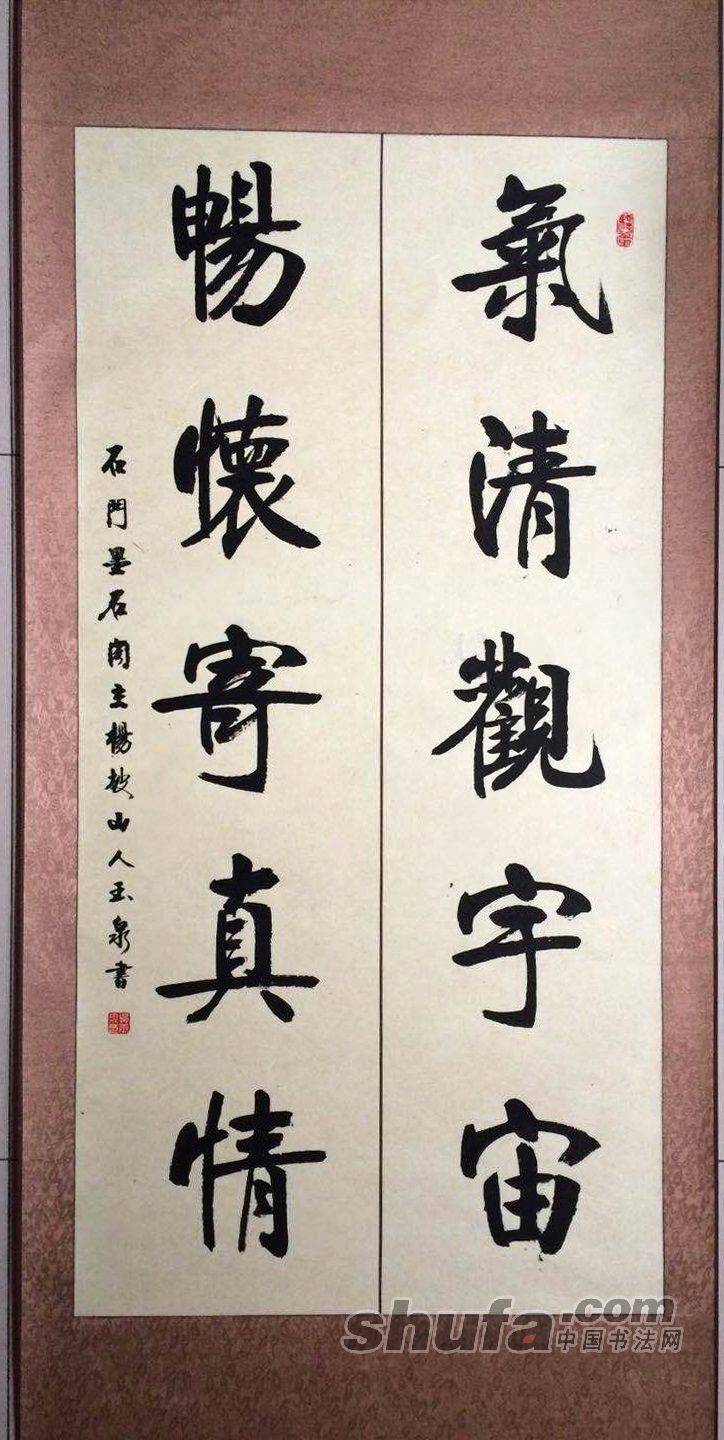 氣清觀宇宙
暢懷寄真情
石門墨石閣主楊鼓山人玉泉書
shufa.com
中国书法网